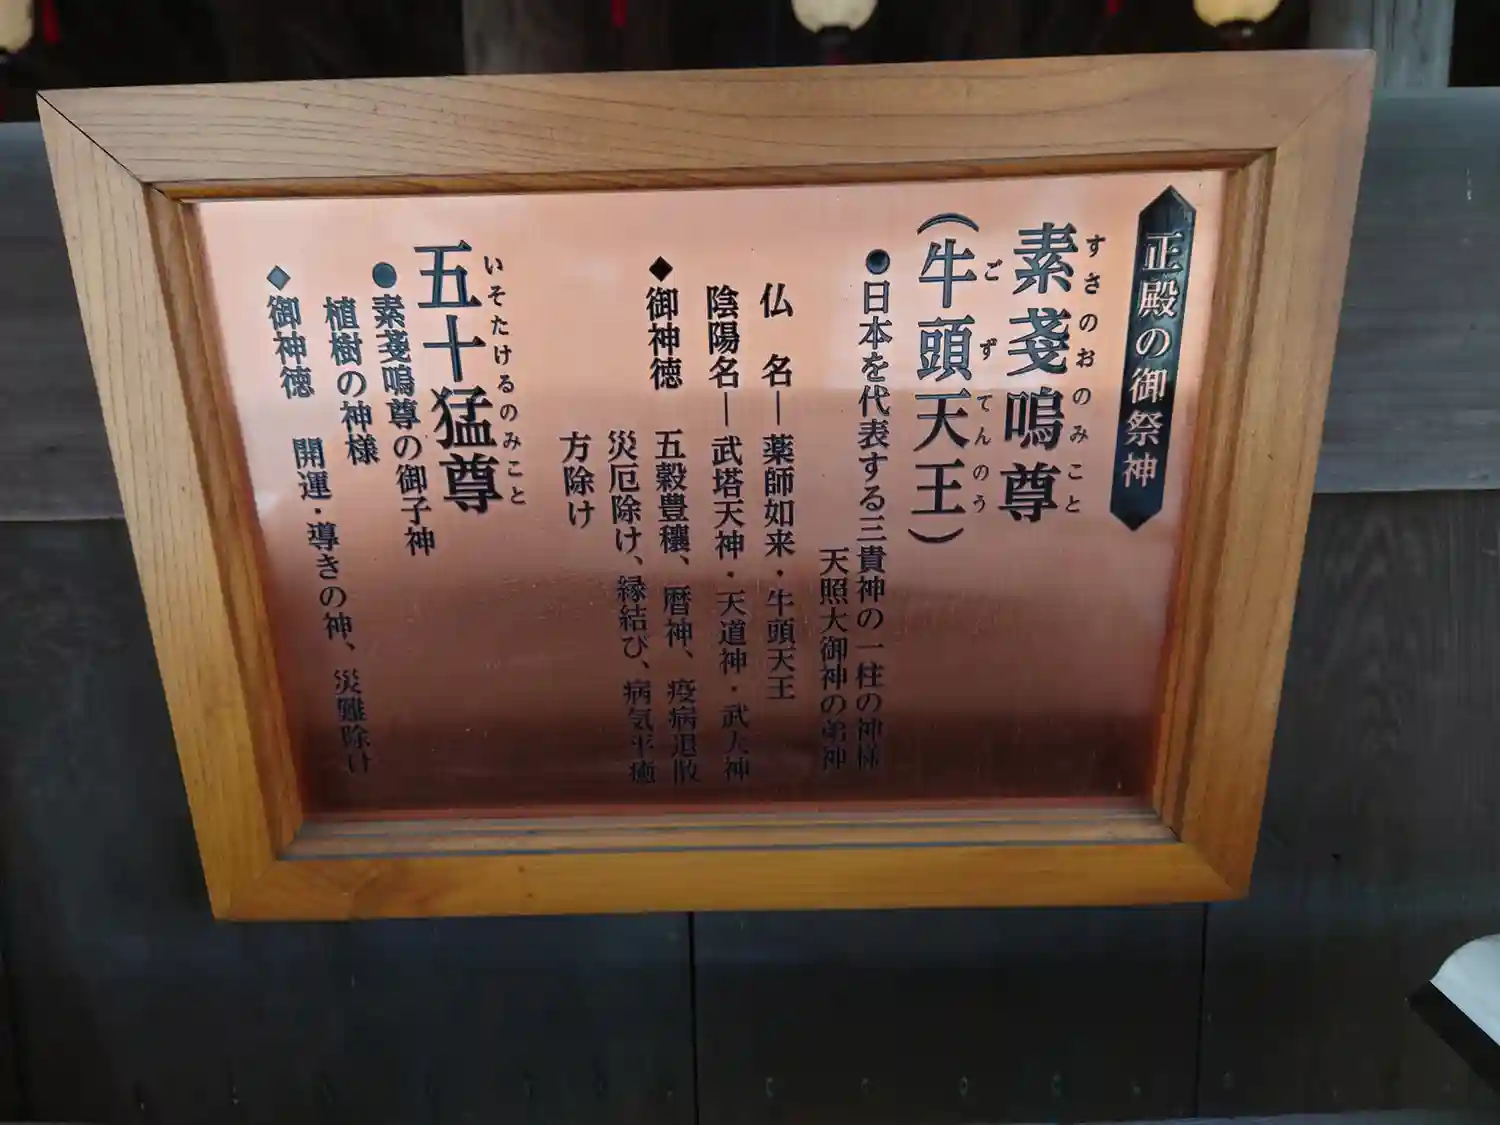 正殿の御祭神
すさのおのみこと
素戔嗚尊
ごずてんのう
（牛頭天王）
●日本を代表する三貴神の一柱の神様
天照大御神の弟神
仏　名―薬師如来・牛頭天王
陰陽名―武塔天神・天道神・武大神
◆御神徳　五穀豊穣、暦神、疫病退散
災厄除け、縁結び、病気平癒
方除け
いそたけるのみこと
五十猛尊
●素戔嗚尊の御子神
植樹の神様
◆御神徳　開運・導きの神、災難除け